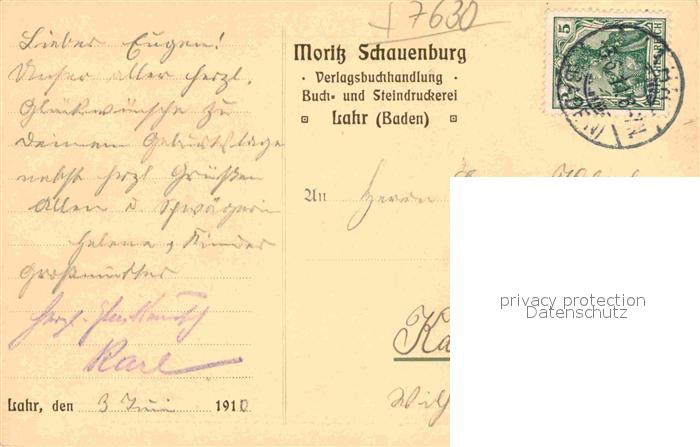 7630
Lieber Eugen!
Unser aller herzl.
Glückwünsche zu
Deinem Geburtstage
nebst herzl Grüßen
Allen u Schwägerin
Helene, Kinder
Großmutter
Herzl.
Karl
Lahr, den 3 Juni 1910
Moritz Schauenburg
· Verlagsbuchhandlung ·
Buch- und Steindruckerei
Lahr (Baden)
5
REICH
(BADEN)
An Herrn
Ka
Wilh
privacy protection
Datenschutz